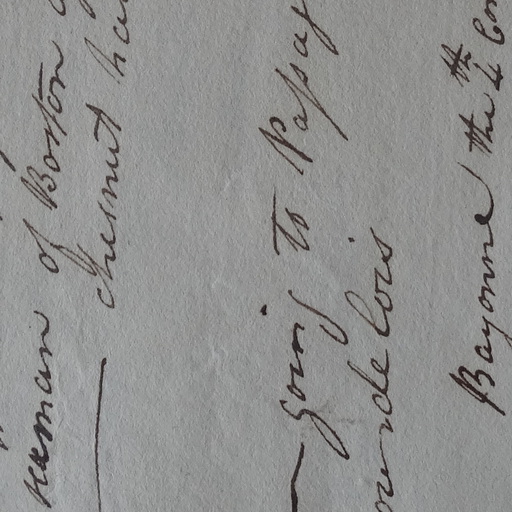 seaman of Boston
Chesnut ha
going to Pasaj
ourdelois
Bayonne the 4th Com